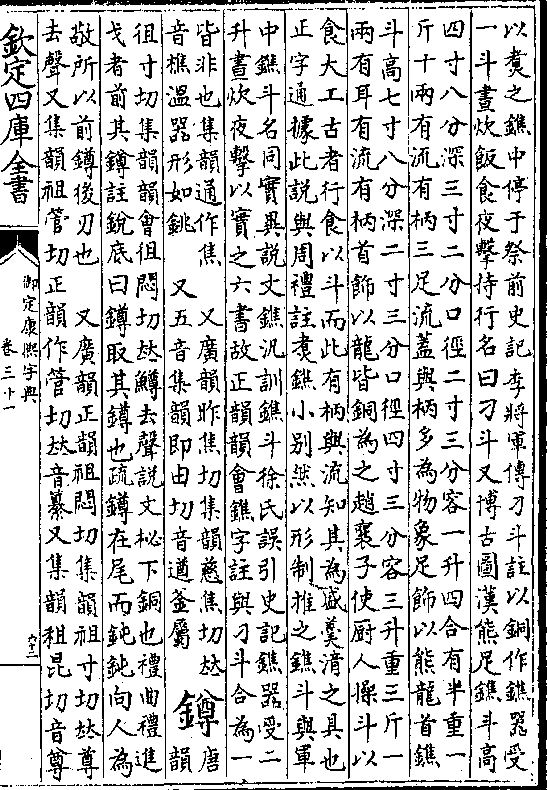 以爂之鐎中停于祭前史記李將軍傳刁斗註以銅作鐎器受
一斗晝炊飯食夜擊持行名曰刁斗又博古圖漢熊足鐎斗高
四寸八分深三寸二分口徑二寸三分容一升四合有半重一
斤十兩有流有柄三足流蓋與柄多為物象足飾以熊龍首鐎
斗高七寸八分深二寸三分口徑四寸三分容三升重三斤一
兩有耳有流有柄首飾以龍皆銅為之趙襄子使厨人操斗以
食大工古者行食以斗而此有柄與流知其為盛羮湇之具也
正字通據此説與周禮註爂鐎小别然以形制推之鐎斗與軍
中鐎斗名同實異説文鐎汎訓鐎斗徐氏誤引史記鐎器受二
升晝炊夜擊以實之六書故正韻韻會鐎字註與刁斗合為一
皆非也集韻通作焦 又廣韻昨焦切集韻慈焦切𠀤
音樵溫器形如銚 又五音集韻即由切音遒釜屬
鐏
唐韻
徂寸切集韻韻會徂悶切𠀤鱒去聲説文柲下銅也禮曲禮進
戈者前其鐏註銳底曰鐏取其鐏也疏鐏在尾而鈍鈍向人為
敬所以前鐏後刃也 又廣韻正韻祖悶切集韻祖寸切𠀤尊
去聲又集韻祖管切正韻作管切𠀤音纂又集韻租昆切音尊
欽定四庫全書
御定康熙字典
卷三十一